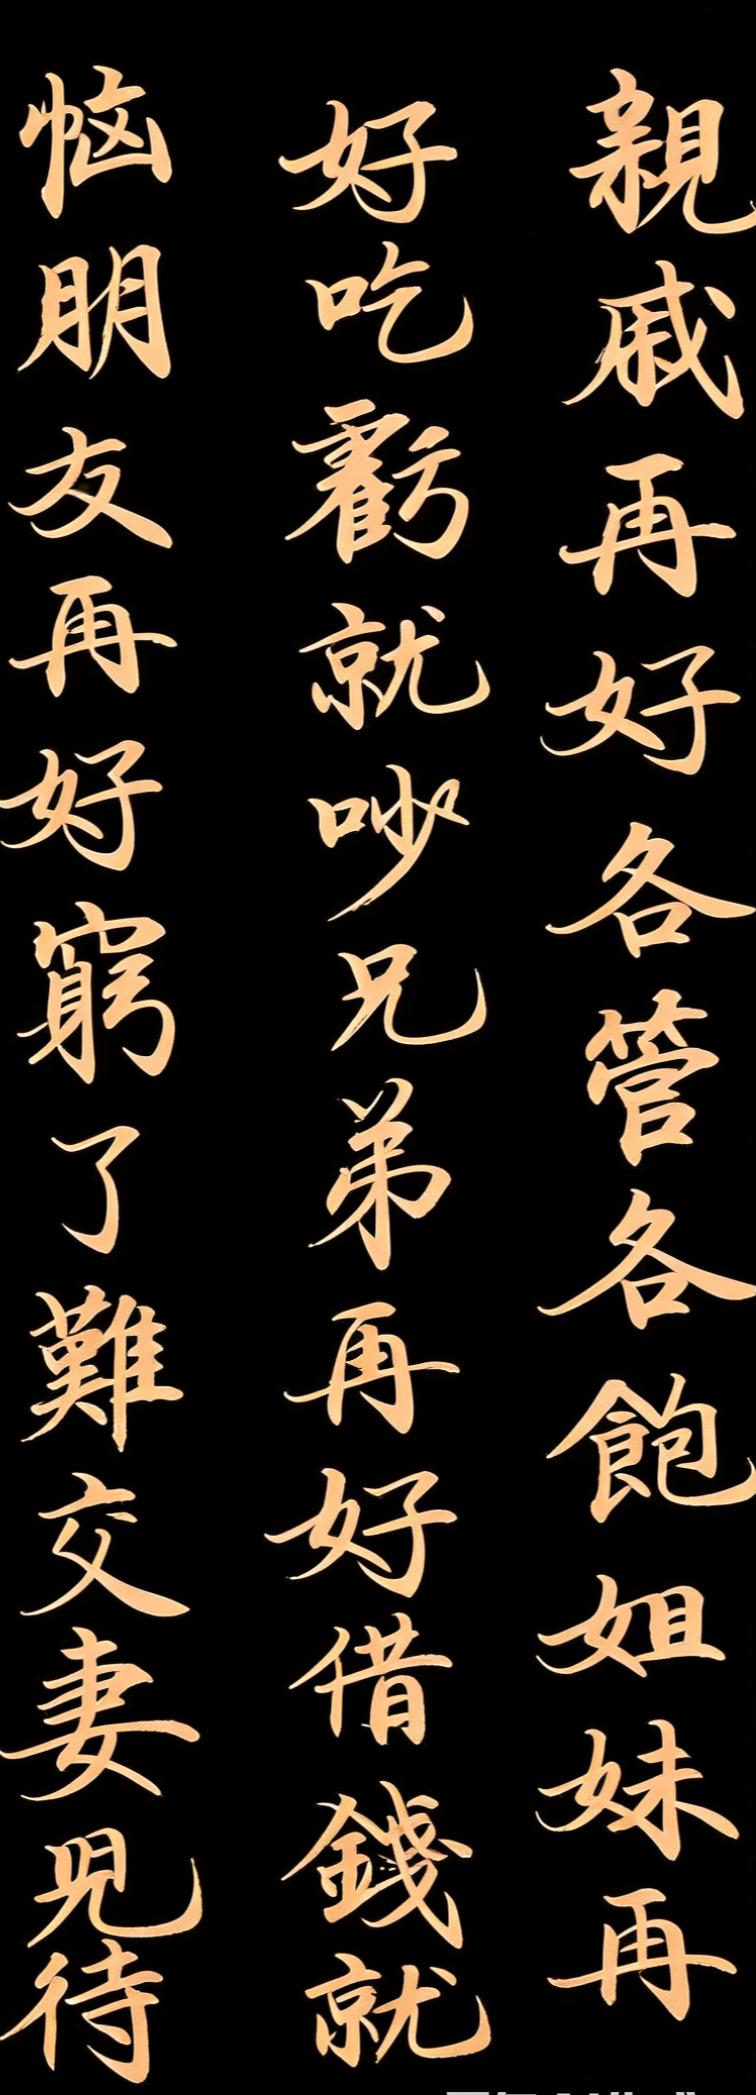 親戚再好各管各飽姐妹再
好吃虧就吵兄弟再好借錢就
恼朋友再好窮了難交妻見待